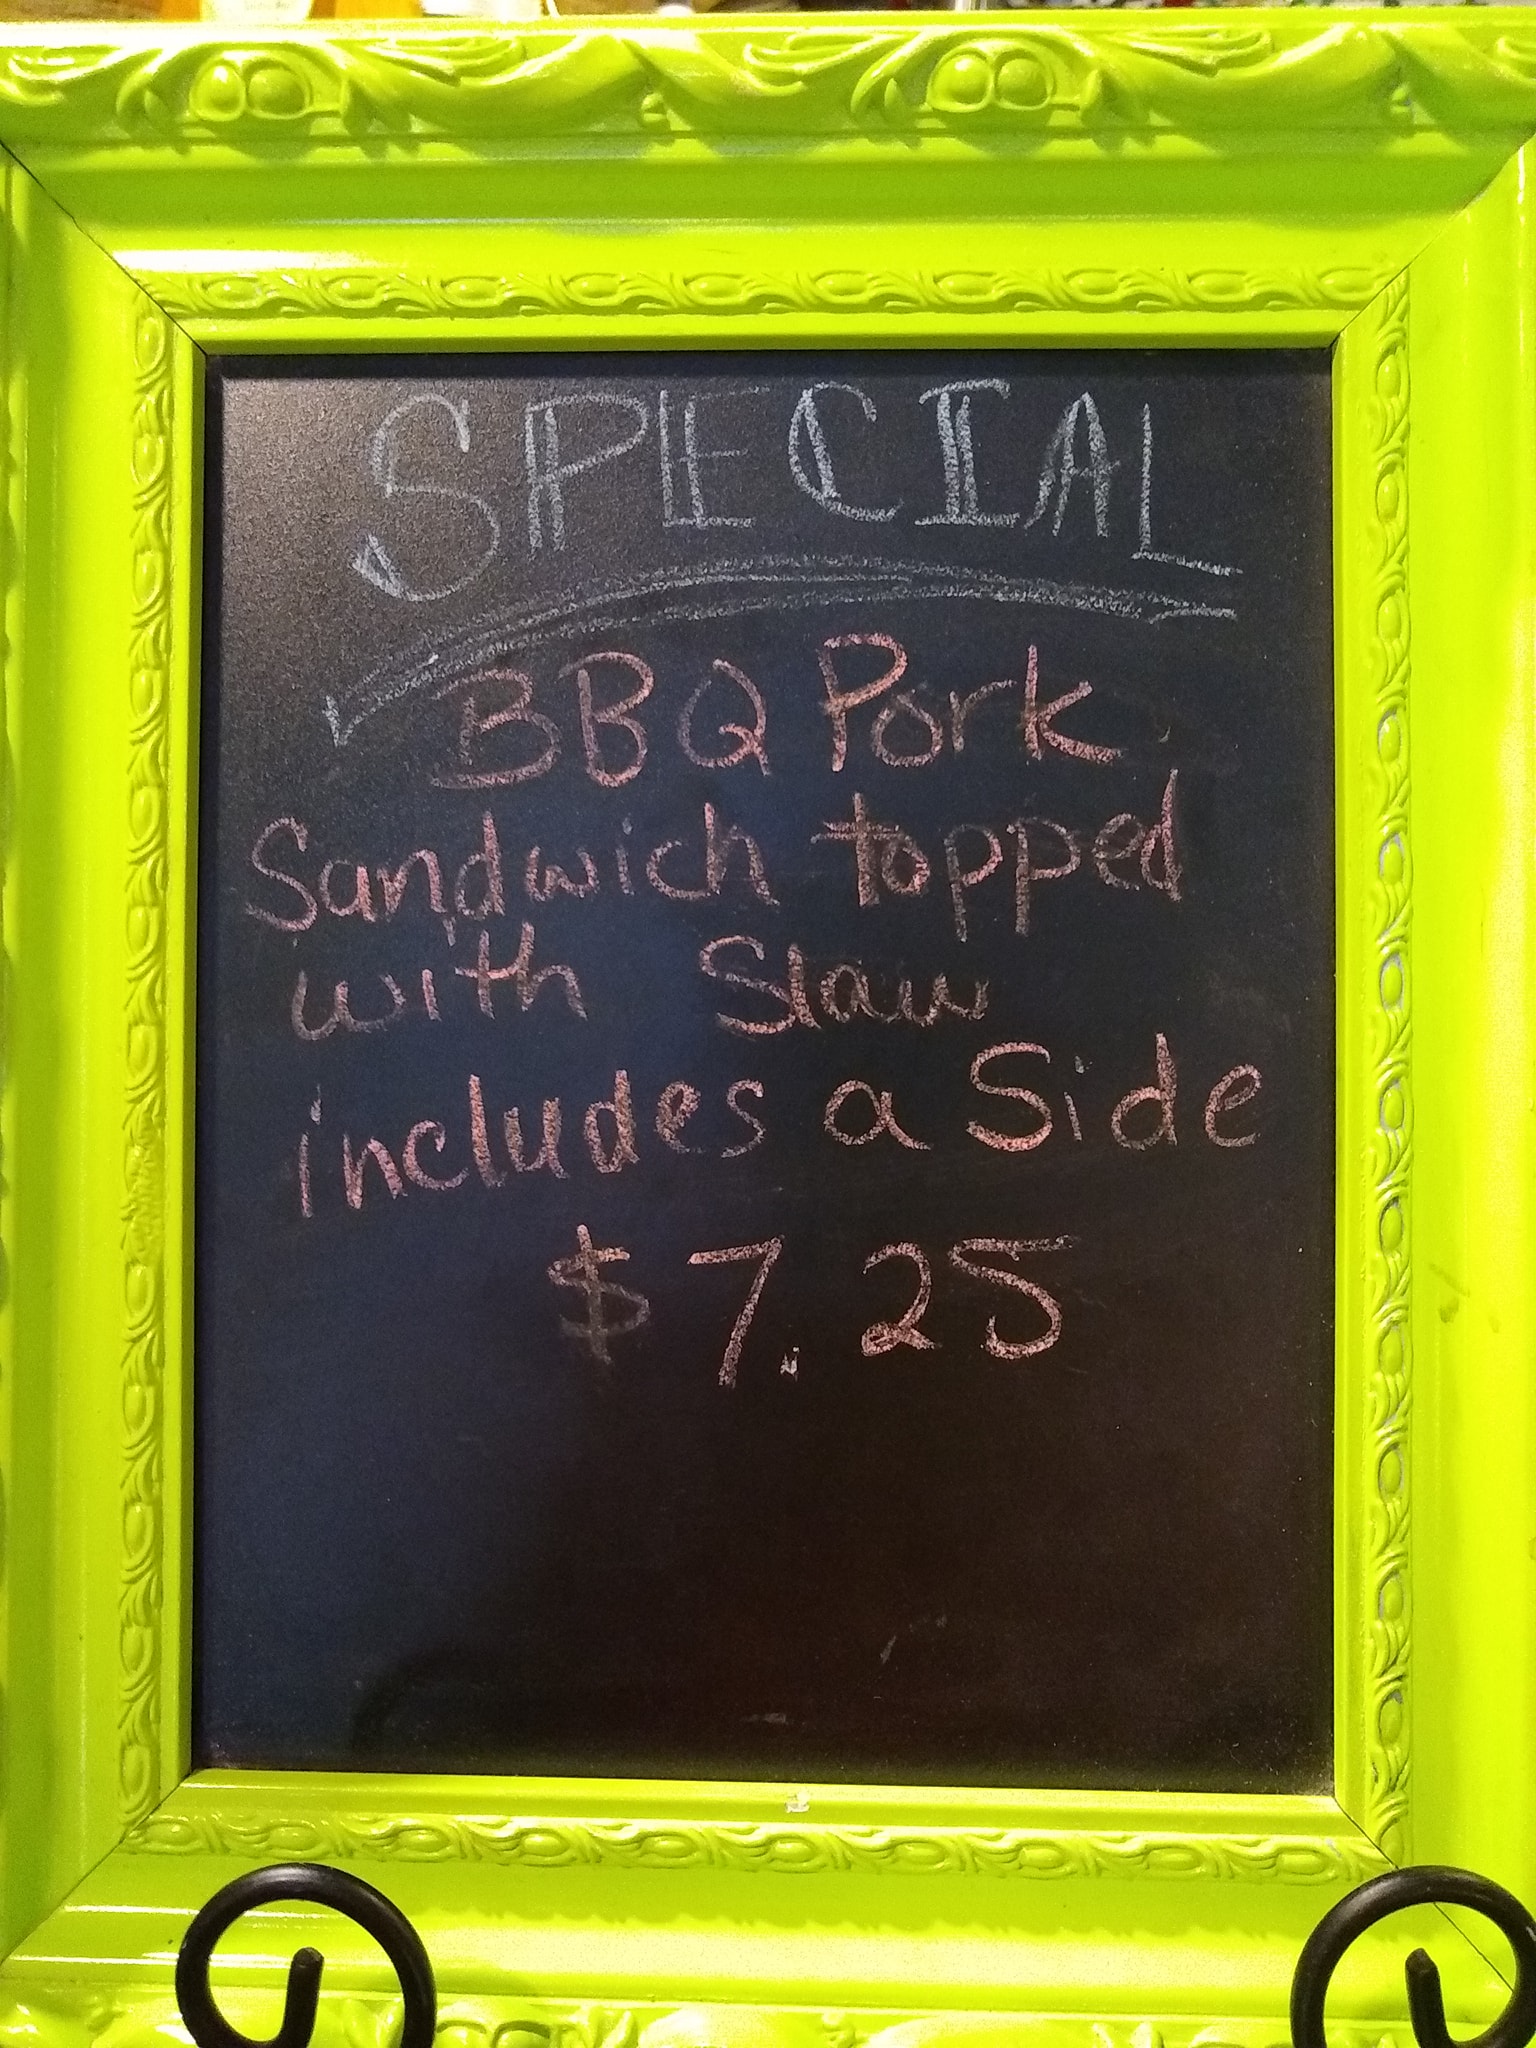 SPECIAL
BBQ Pork
Sandwich topped
with Slaw
includes a Side
$7.25